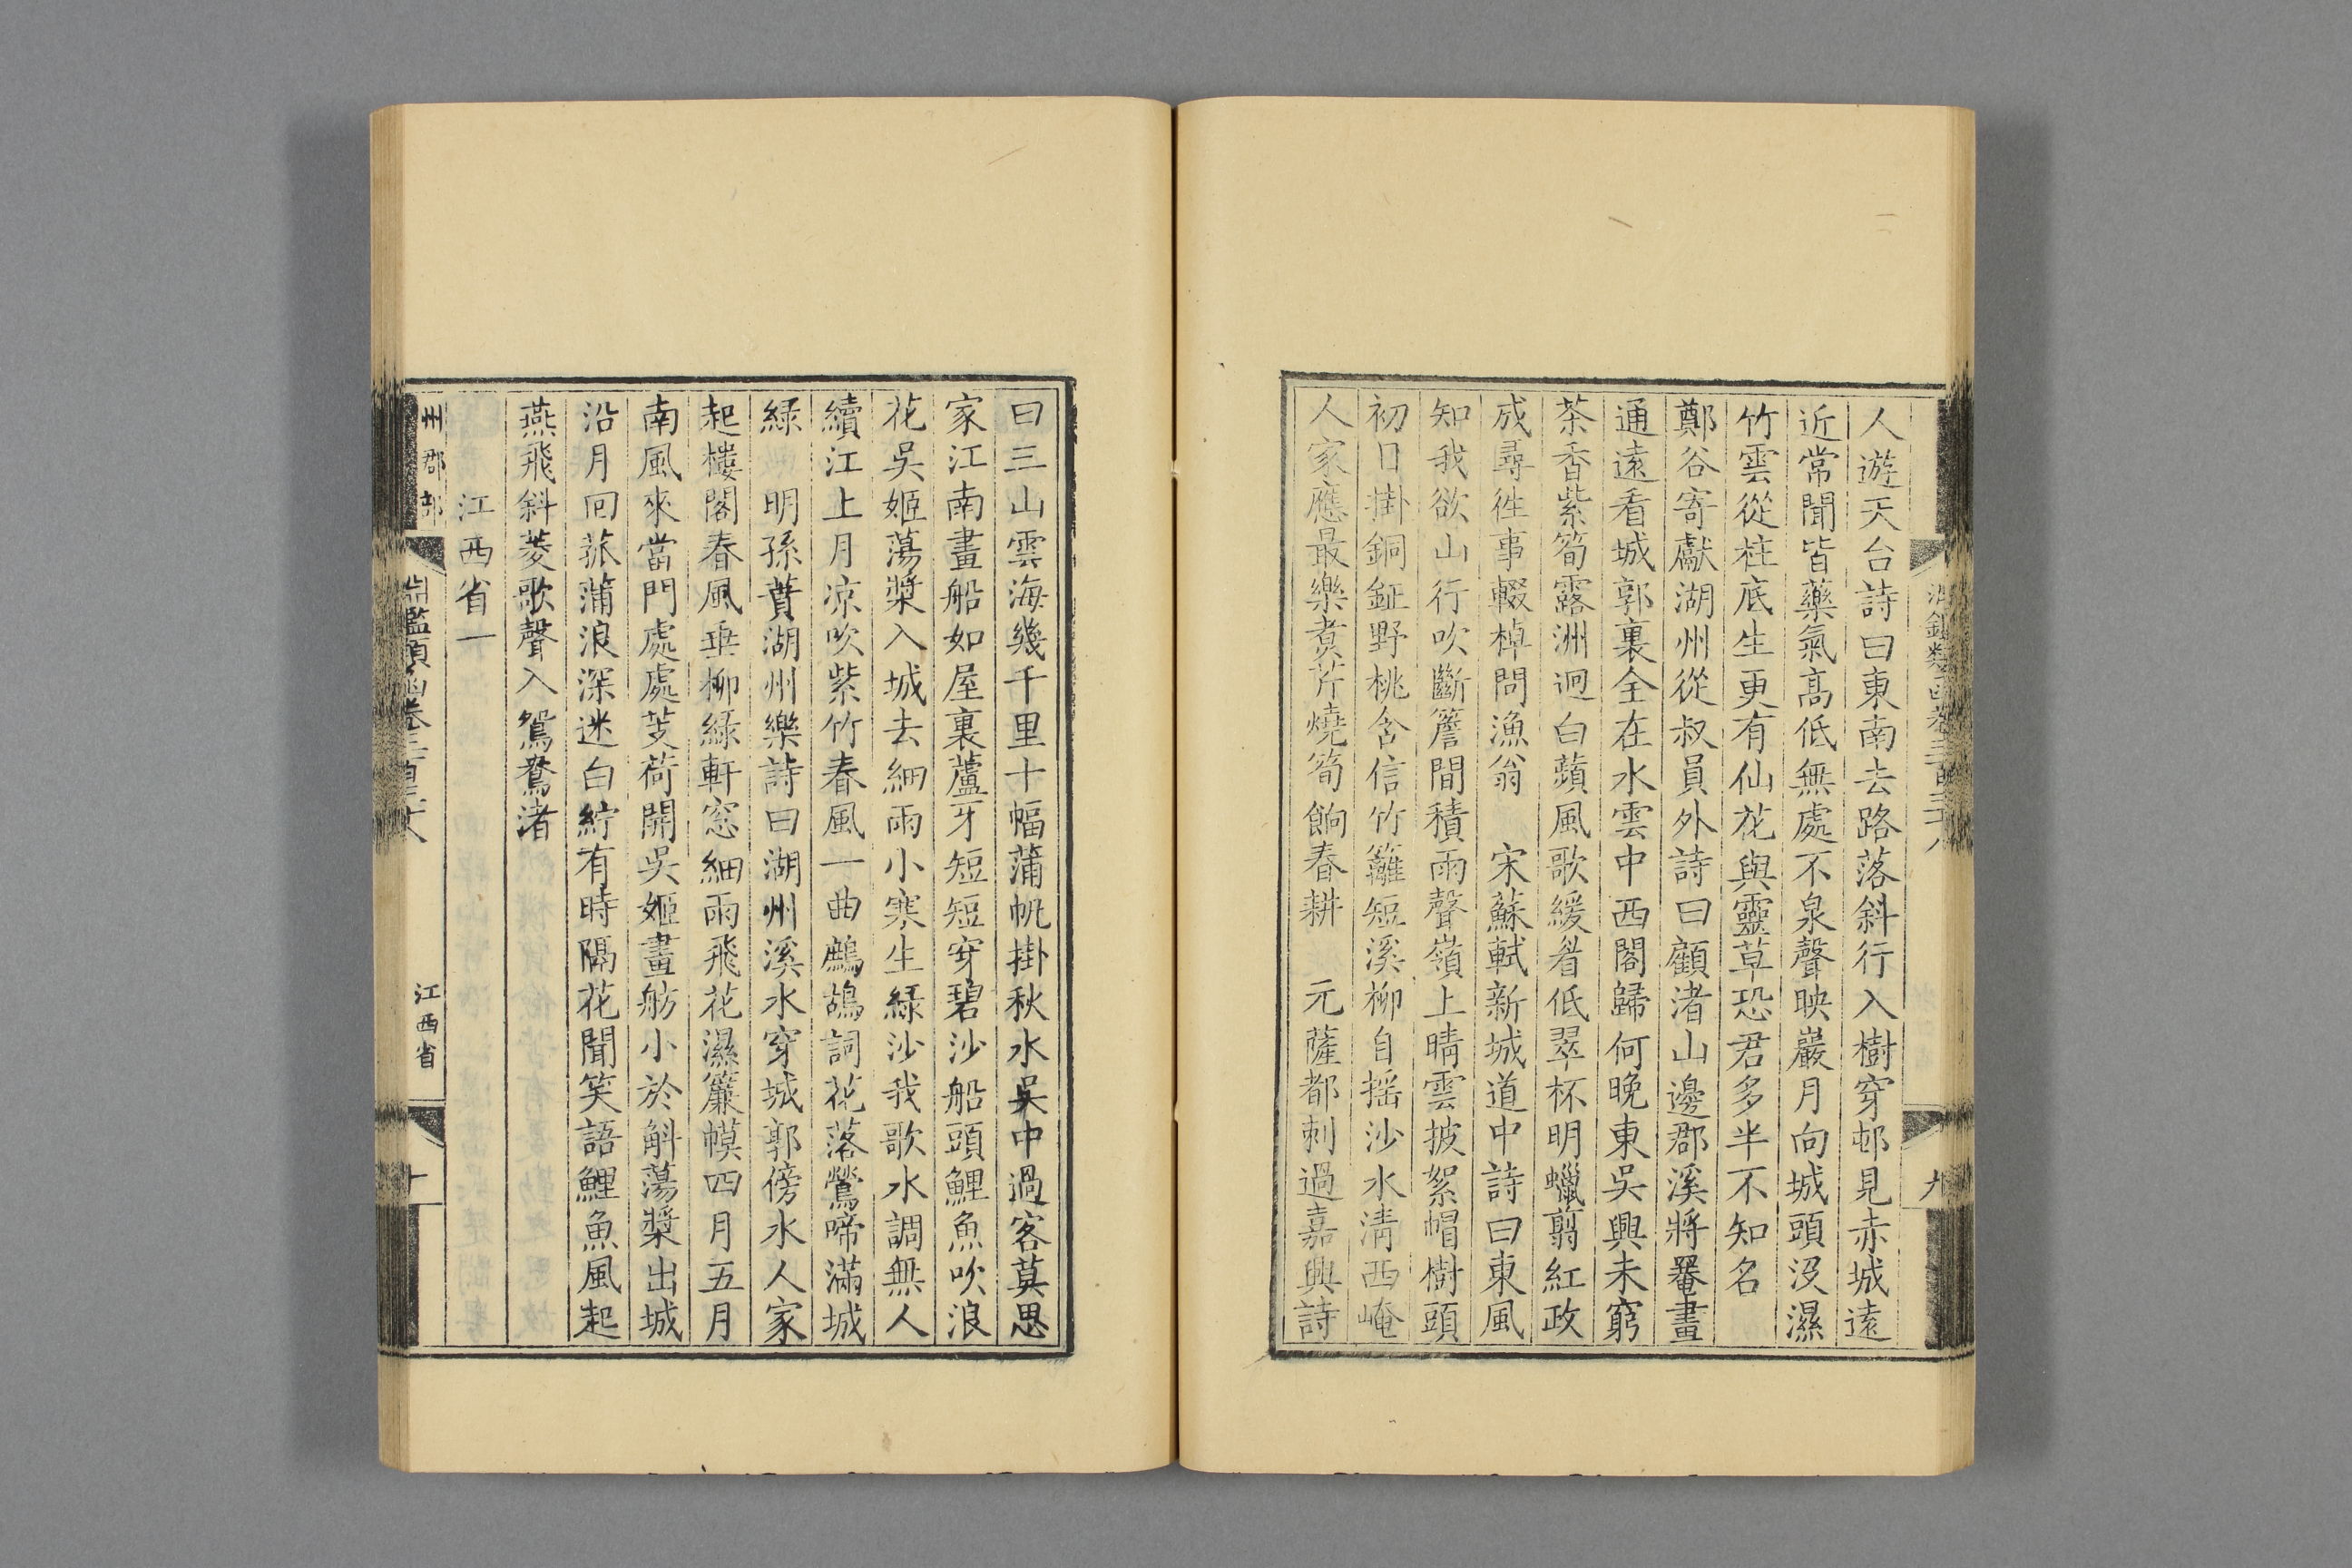 人遊天台詩曰東南去路落斜行入樹穿邨見赤城遠
近常聞皆藥氣髙低無處不泉聲映巖月向城頭沒濕
竹雲從柱底生更有仙花與靈草恐君多半不知名
鄭谷寄獻湖州從叔員外詩曰顧渚山邊郡溪將罨畫
通遠看城郭裏全在水雲中西閣歸何晚東吳興未窮
茶香紫筍露洲迥白蘋風歌緩㸔低翠杯明蠟翦紅政
成尋徃事輟棹問漁翁 宋蘇軾新城道中詩曰東風
知我欲山行吹斷簷間積雨聲嶺上晴雲披絮帽樹頭
初日掛銅鉦野桃含信竹籬短溪柳自摇沙水淸西崦
人家應最樂煑芹燒筍餉春耕 元薩都剌過嘉興詩
曰三山雲海幾千里十幅蒲帆掛秋水吳中過客莫思
家江南畫船如屋裏蘆牙短短穿碧沙船頭鯉魚吹浪
花吳姬蕩槳入城去細雨小寒生綠沙我歌水調無人
續江上月凉吹紫竹春風一曲鷓鴣詞花落鶯啼滿城
緑 明孫蕡湖州樂詩曰湖州溪水穿城郭傍水人家
起樓閣春風垂柳緑軒窓細雨飛花濕簾幙四月五月
南風來當門處處芰荷開吳姬畫舫小於斛蕩槳出城
沿月回菰蒲浪深迷白紵有時隔花聞笑語鯉魚風起
燕飛斜菱歌聲入鴛鴦渚
江西省一
州郡部
江西省
十
九